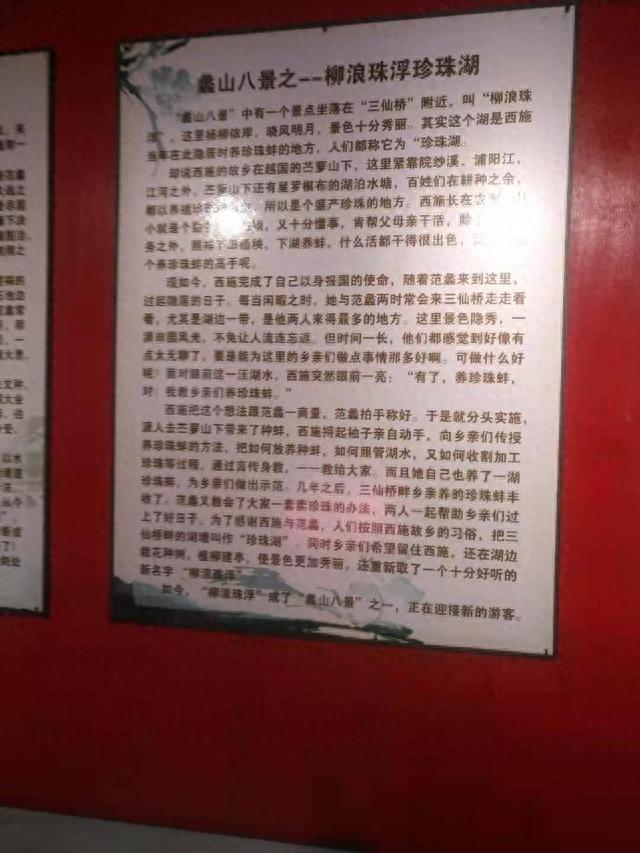 蠡山八景之--柳浪珠浮珍珠湖
“蠡山八景”中有一个景点坐落在“三仙桥”附近。叫“柳浪珠
浮”，这里杨柳依岸，晓风明月，景色十分秀丽。其实这个湖是西施
当年在此隐居时养珍珠蚌的地方，人们都称它为“珍珠湖。
却说西施的故乡在越国的苎萝山下，这里紧靠院纱溪、浦阳江，
江河之外，苎萝山下还有星罗棋布的湖泊水塘，百姓们在耕种之余，
都以养殖 所以是个盛产珍珠的地方。西施长在农
小就是个 娘，又十分懂事，肯帮父母亲干活，除
务之外，照样下田插秧，下湖养蚌，什么活都干得很出色，
个养珍珠蚌的高手呢。
现如今，西施完成了自己以身报国的使命，随着范蠡来到这里，
过起隐居的日子。每当闲暇之时，她与范蠡两时常会来三仙桥走走看
看，尤其是湖边一带，是他两人来得最多的地方。这里景色隐秀，一
源田园风光，不免让人流连忘返。但时间一长，他们都感觉到好像有
点太无聊了，要是能为这里的乡亲们做点事情那多好啊。可做什么好
呢？面对眼前这一汪湖水，西施突然眼前一亮：“有了，养珍珠蚌，
对！我教乡亲们养珍珠蚌。”
西施把这个想法跟范蠡一商量，范蠡拍手称好。于是就分头实施，
派人去苎萝山下带来了种蚌，西施捋起袖子亲自动手，向乡亲们传授
养珍珠蚌的方法，把如何放养种蚌，如何照管湖水，又如何收割加工
珍珠等过程，通过言传身教，一一教给大家。而且她自己也养了一湖
珍珠蚌，为乡亲们做出示范。几年之后，三仙桥畔乡亲养的珍珠蚌丰
收了。范蠡又教会了大家一套卖珍珠的办法，两人一起帮助乡亲们过
上了好日子。为了感谢西施与范蠡，人们按照西施故乡的习俗，把三
仙桥畔的湖塘叫作“珍珠湖”。同时乡亲们希望留住西施，还在湖边
栽花种树，植柳建亭，使景色更加秀丽，还重新取了一个十分好听的
新名字“柳浪珠浮”。
如今，“柳浪珠浮”成了“蠡山八景”之一，正在迎接新的游客。